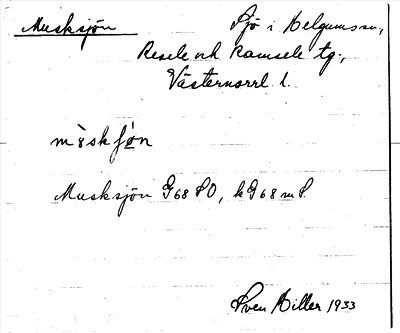 Musksjön Sjö i Helgumssn,
Resele och Ramsele tg.,
Västernorrl. l.
Musksjön G68 SO, kG68 m S.
Sven Hiller 1933